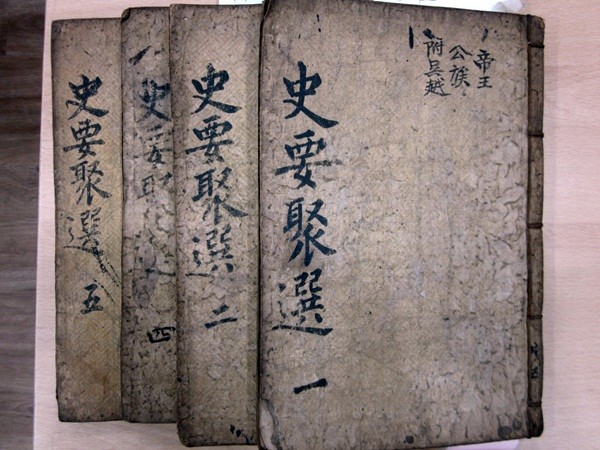 帝王
公族
附吳越
史要聚選 一
史要聚選 二
史要聚選 四
史要聚選 五